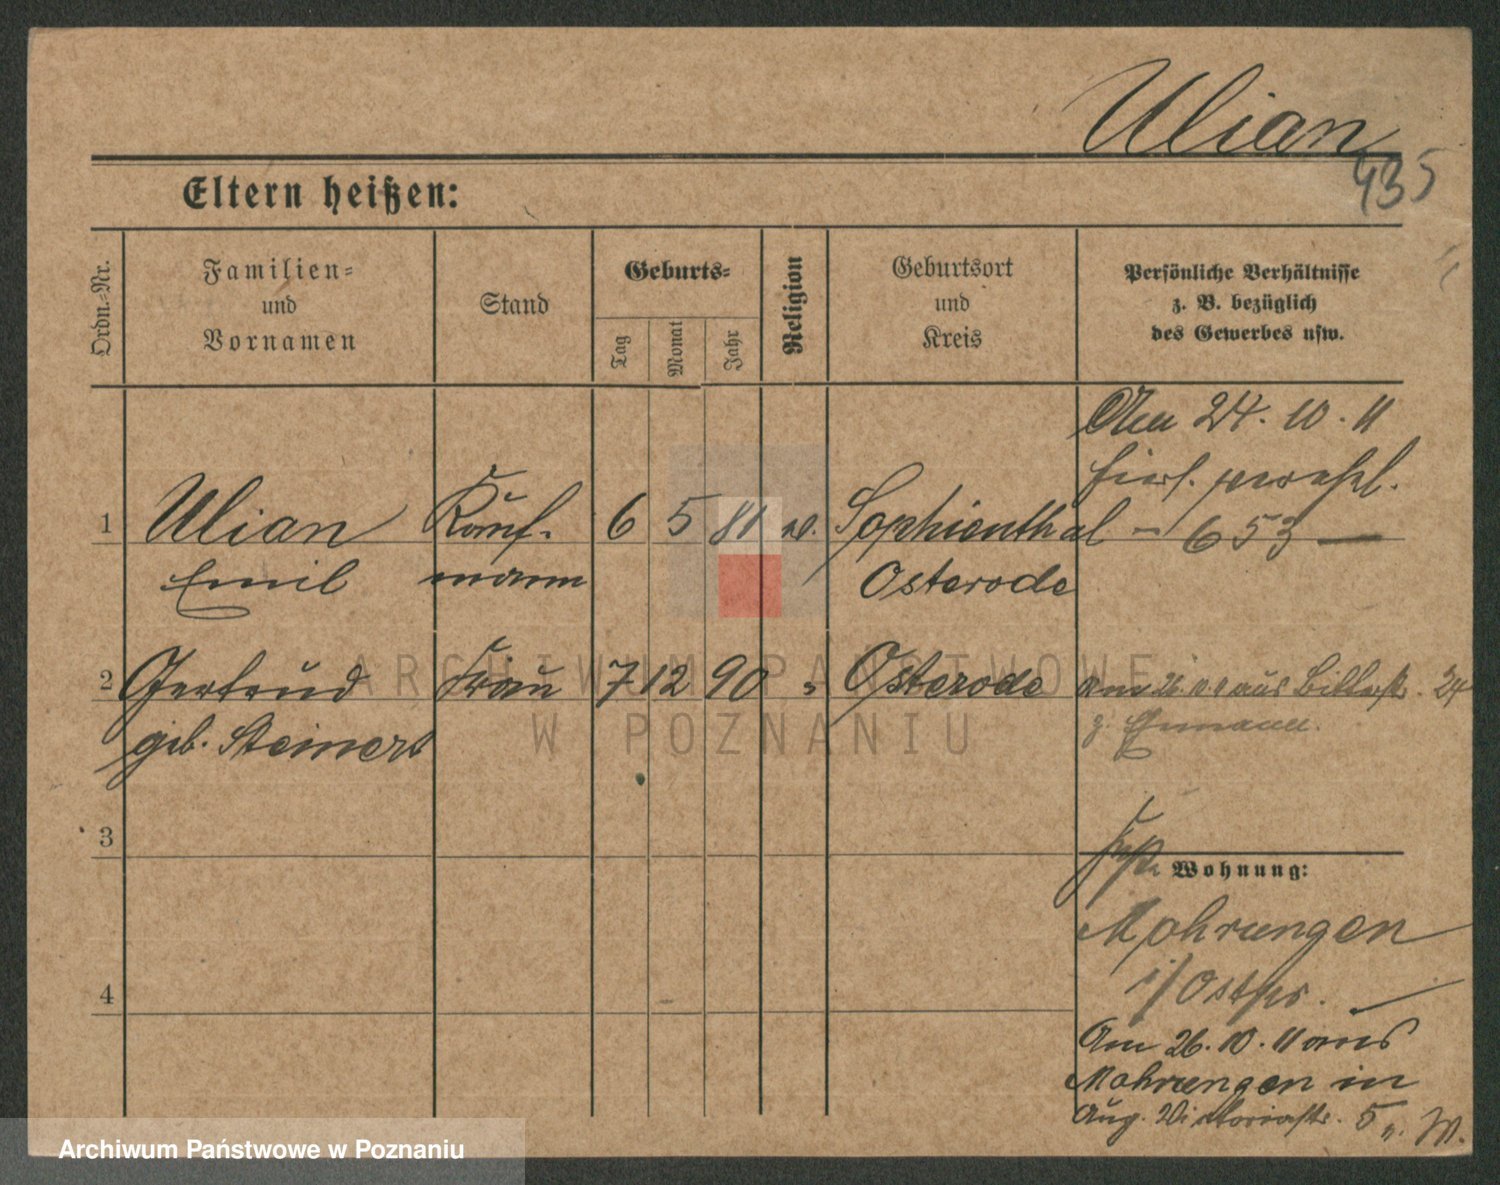 Ulian
435
Eltern heißen:
Ordn.=Nr.
Familien=
und
Vornamen
Stand
Geburts=
Tag
Monat
Jahr
Religion
Geburtsort
und
Kreis
Persönliche Verhältnisse
z. B. bezüglich
des Gewerbes usw.
Am 24. 10. 11
hierh.
1 Ulian Kauf- 6 5 81 Sophienthal - 653 —
Emil mann Osterode
2 Gertrud Frau 7 12 90 Osterode Am 26. aus 24
geb. Steinert
z. Ehemann.
3
Wohnung:
Mohrungen
i/Ostpr.
4
Am 26. 10. 11 aus
Mohrungen in
Aug. Viktoriastr. 5
ARCHIWUM PAŃSTWOWE
W POZNANIU
Archiwum Państwowe w Poznaniu